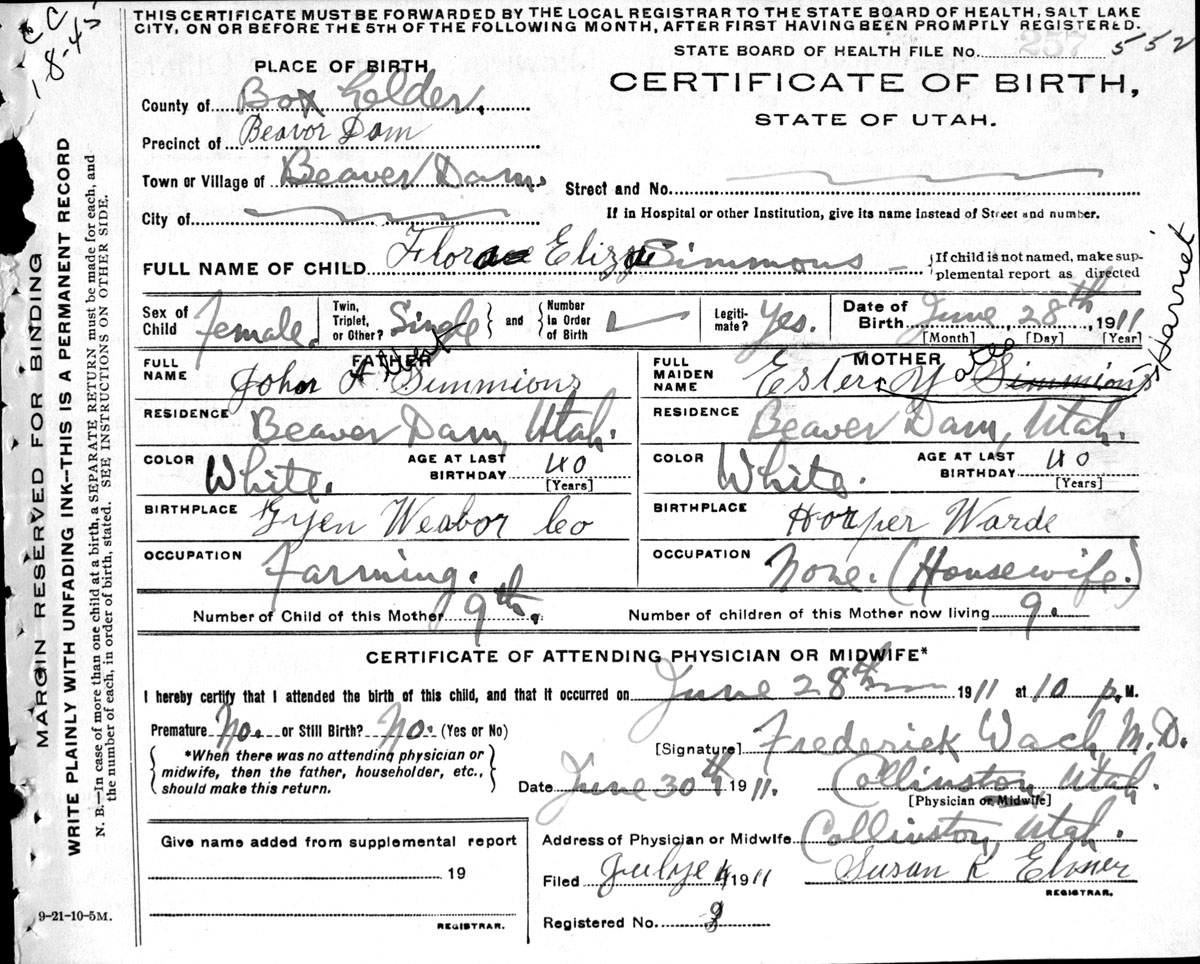 THIS CERTIFICATE MUST BE FORWARDED BY THE LOCAL REGISTRAR TO THE STATE BOARD OF HEALTH, SALT LAKE
CITY, ON OR BEFORE THE 5TH OF THE FOLLOWING MONTH, AFTER FIRST HAVING BEEN PROMPTLY REGISTERED.
STATE BOARD OF HEALTH FILE No. 257 552
18-45
PLACE OF BIRTH
CERTIFICATE OF BIRTH,
STATE OF UTAH.
County of Box Eelder.
Precinct of Beavor Dam
Town or Village of Beaver Dam.
Street and No.
City of
If in Hospital or other Institution, give its name Instead of Street and number.
FULL NAME OF CHILD Simmons
If child is not named, make sup-
plemental report as directed
Sex of Child Female.
Twin, Triplet, or Other? Single
and
Number in Order of Birth
Legiti-mate? Yes.
Date of Birth June 28th, 1911
[Month] [Day] [Year]
FATHER
FULL NAME John Simmions
RESIDENCE Beaver Dam, Utah.
COLOR White.
AGE AT LAST BIRTHDAY 40
[Years]
BIRTHPLACE Gyen Weabor Co
OCCUPATION Farming.
MOTHER
FULL MAIDEN NAME Ester Yates Simmions Harriet
RESIDENCE Beaver Dam, Utah.
COLOR White.
AGE AT LAST BIRTHDAY 40
[Years]
BIRTHPLACE Horper Warde
OCCUPATION None. (Housewife.)
Number of Child of this Mother 9th.
Number of children of this Mother now living 9.
CERTIFICATE OF ATTENDING PHYSICIAN OR MIDWIFE*
I hereby certify that I attended the birth of this child, and that it occurred on June 28th 1911 at 10 p. M.
Premature No. or Still Birth? No. (Yes or No)
*When there was no attending physician or
midwife, then the father, householder, etc.,
should make this return.
[Signature] Frederick Wach, M.D.
Date June 30th 1911.
Collinston, Utah.
[Physician or Midwife]
Address of Physician or Midwife Collinston, Utah.
Filed Julye 4 1911
Susan K
REGISTRAR.
Registered No.
Give name added from supplemental report
19
REGISTRAR.
9-21-10-5M.
MARGIN RESERVED FOR BINDING
WRITE PLAINLY WITH UNFADING INK—THIS IS A PERMANENT RECORD
N. B.—In case of more than one child at a birth, a SEPARATE RETURN must be made for each, and
the number of each, in order of birth, stated. SEE INSTRUCTIONS ON OTHER SIDE.